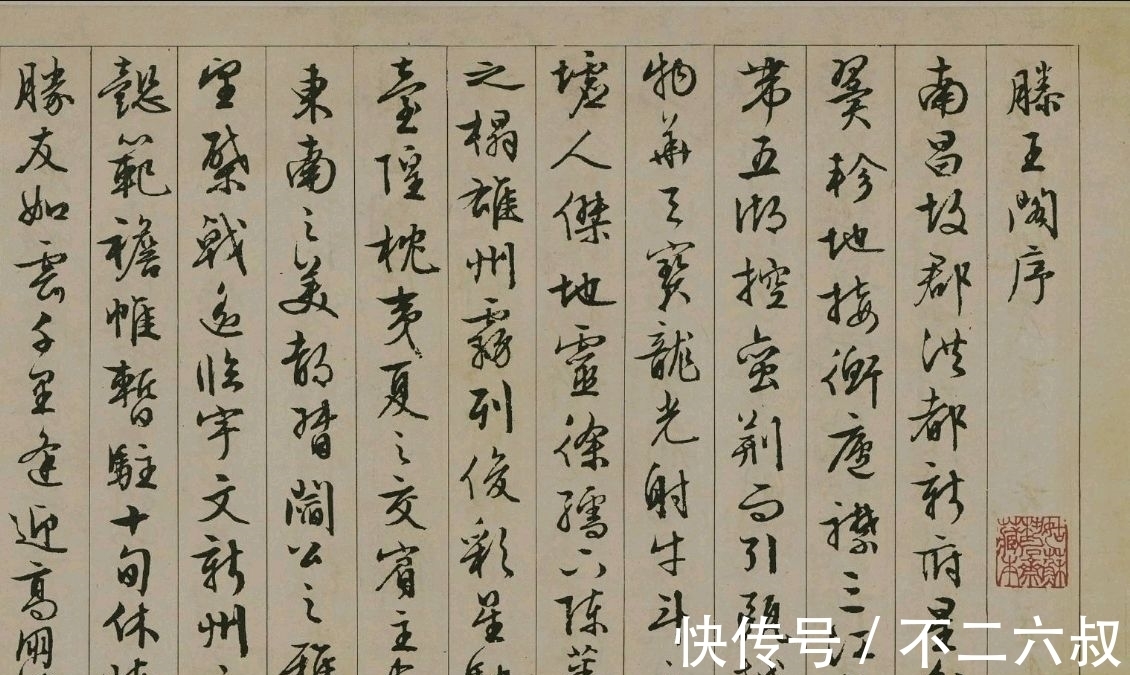 滕王閣序
南昌故郡洪都新府星
翼軫地接衡廬襟三江
帶五湖控蠻荊而引甌
物華天寶龍光射牛斗
墟人傑地靈徐孺下陳蕃
之榻雄州霧列俊彩星
臺隍枕夷夏之交賓主
東南之美都督閻公之雅
望棨戟遙臨宇文新州
懿範襜帷暫駐十旬休
勝友如雲千里逢迎高朋
快传号 / 不二六叔